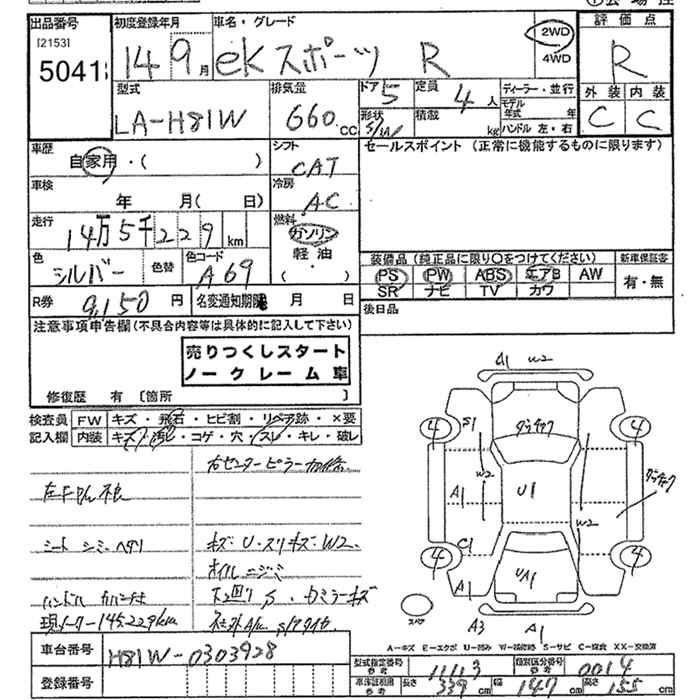 出品番号 初度登録年月 車名・グレード 評価点
[2153] 5041 14 9月 eKスポーツ R 2WD 4WD R
型式 排気量 ドア 定員 ディーラー・並行 外装 内装
LA-H81W 660cc 5 4人 モデル年式 年 C C
形状 S/W 積載 kg ハンドル 左・右
車歴 シフト セールスポイント (正常に機能するものに限ります)
自家用・( ) CAT
車検 年 月(日) 冷房 AC
走行 14万5千229km 燃料 ガソリン
色 シルバー 色替 色コード A69 軽油・( )
装備品 (純正品に限り○をつけてください) 新車保証書
PS PW ABS エアB AW 有・無
SR ナビ TV カワ
R券 9,150円 名変通知期限 月 日 後日品
注意事項申告欄(不具合内容等は具体的に記入して下さい)
売りつくしスタート
ノークレーム車
修復歴 有 [箇所 ]
検査員記入欄 FW キズ・飛石・ヒビ割・リペア跡・×要
内装 キズ・汚レ・コゲ・穴・スレ・キレ・破レ
右センターピラー
不良
シート シミ ヘタリ キズ U・スリキズ・W2
オイルニジミ
ハンドル
下回り S
現メーター145,229km
A1 W2
S1 ダッチャク
4 4
W2
A1 U1 ダッチャク
W2
C1
4 4
A1 UA1
スペア A3 A1
A-キズ E-エクボ U-凹み W-補修跡 S-サビ C-腐食 XX-交換済
車台番号 H81W-0303928
登録番号
型式指定番号 参考 11113 類別区分番号 参考 0014
車体証明範囲 参考 長さ 339cm 幅 147cm 高さ 155cm